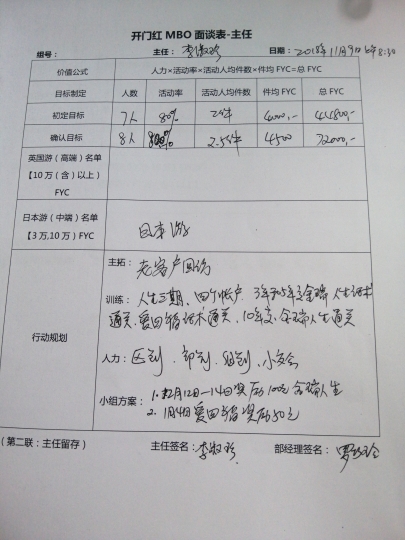 开门红 MBO 面谈表-主任
组号： 主任：李淑珍 日期：2018年11月9日 8:30
价值公式 人力×活动率×活动人均件数×件均 FYC=总 FYC
目标制定 人数 活动率 活动人均件数 件均 FYC 总 FYC
初定目标 7人 80% 2件 4000,- 44800,-
确认目标 8人 2.5件 4500 72000,-
英国游（高端）名单
【10 万（含）以上）
FYC
日本游（中端）名单 日本游
【3 万,10 万）FYC
行动规划
主拓：老客户回访
训练：人生三期、四个账户 3年和5年交金瑞人生话术
通关、爱回馈话术通关、10年交金瑞人生通关
人力：区刘、部刘、组刘、小交会
小组方案：1. 12月12日—14日奖励100元金瑞人生
2. 1月4日爱回馈奖励50元
（第二联：主任留存） 主任签名：李淑珍 部经理签名：